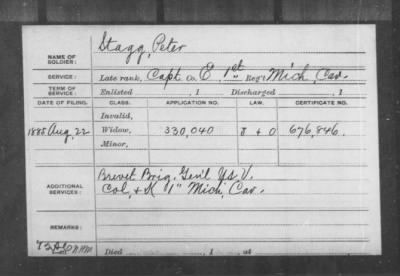 Stagg, Peter
NAME OF SOLDIER:
SERVICE: Late rank, Capt Co. E, 1st Reg't Mich. Cav.
TERM OF SERVICE: Enlisted , 1 Discharged , 1
DATE OF FILING. CLASS. APPLICATION NO. LAW. CERTIFICATE NO.
Invalid,
1885 Aug, 22 Widow, 330,040 J + O 676,846.
Minor,
ADDITIONAL SERVICES: Brevet Brig. Gen'l U.S.V.
Col, + K 1" Mich, Cav.
REMARKS:
Died , 1 , at